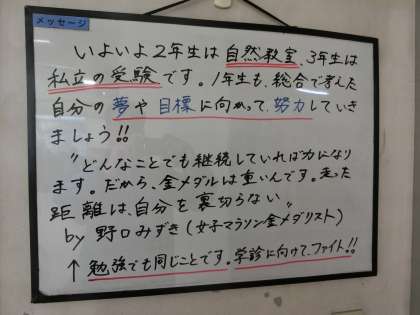 メッセージ
いよいよ2年生は自然教室、3年生は
私立の受験です。1年生も、総合で考えた
自分の夢や目標に向かって、努力していき
ましょう!!
"どんなことでも継続していれば力になり
ます。だから、金メダルは重いんです。走った
距離は、自分を裏切らない"
by 野口みずき(女子マラソン金メダリスト)
↑勉強でも同じことです。学診に向けて、ファイト!!